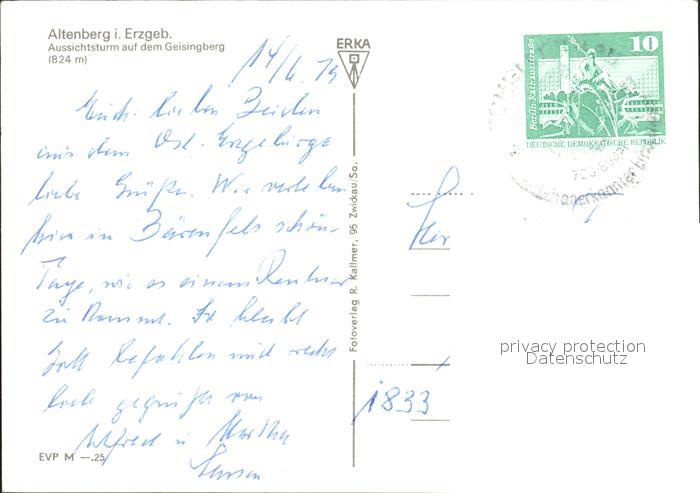 Altenberg i. Erzgeb.
Aussichtsturm auf dem Geisingberg
(824 m)
ERKA
14/6. 79
Euch lieben Beiden
aus dem Ost. Erzgebirge
liebe Grüße. Wir verleben
hier in Bärenfels schöne
Tage, wie es einem Rentner
zu kommt. Ihr bleibt
Gott befohlen und recht
lieb gegrüßt von
Alfred u Martha
EVP M —.25
Fotoverlag R. Kallmer, 95 Zwickau/Sa.
10
Berlin-Rathausstraße
DEUTSCHE DEMOKRATISCHE REPUBLIK
1833
privacy protection
Datenschutz